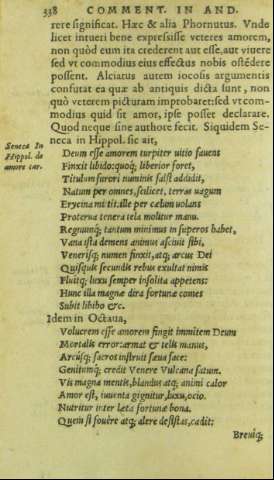 338 COMMENT. IN AND.
rere significat. Hæc & alia Phornutus. Vnde
licet intueri bene expressisse veteres amorem,
non quòd eum ita crederent aut esse, aut viuere
sed vt commodius eius effectus nobis ostédere
possent. Alciatus autem iocosis argumentis
confutat ea quæ ab antiquis dicta sunt, non
quò veterem picturam improbaret: sed vt com-
modius quid sit amor, ipse posset declarare.
Quod neque sine authore fecit. Siquidem Se-
neca in Hippol. sic ait,
Seneca In
Hippol. de
amore
Deum esse amorem turpiter uitio fauens
Finxit libido: quoq; liberior foret,
Titulum furori numinis falsi addidit,
Natum per omnes, scilicet, terras uagum
Erycina mittit. ille per cælum uolans
Proterua tenera tela molitur manu.
Regnumq; tantum minimus in superos habet,
Vana ista demens animus asciuit sibi,
Venerisq; numen finxit, atq; arcus Dei
Quisquis secundis rebus exultat nimis
Fluitq; luxu semper insolita appetens:
Hunc illa magnæ dira fortunæ comes
Subit libido &c.
Idem in Octauia,
Volucrem esse amorem fingit immitem Deum
Mortalis error: armat & telis manus,
Arcusq; sacros instruit sæua face:
Genitumq; credit Venere Vulcano satum.
Vis magna mentis, blandus atq; animi calor
Amor est, iuuenta gignitur, luxu, ocio.
Nutritur inter læta fortunæ bona.
Quem si fouere atq; alere desistas, cadit:
Breuiq;